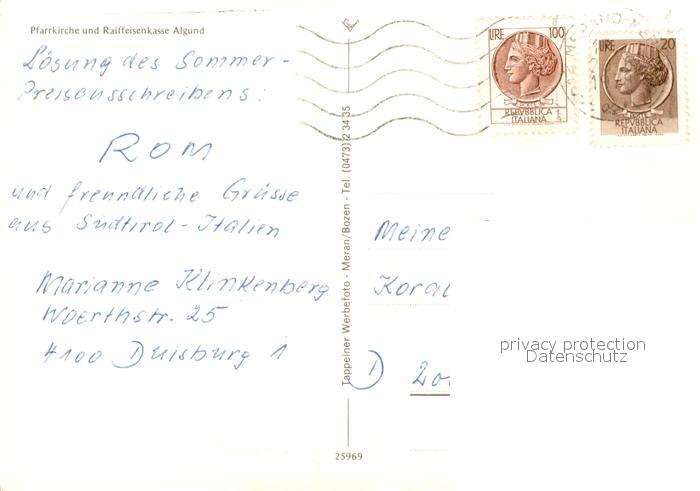 Pfarrkirche und Raiffeisenkasse Algund
Lösung des Sommer-
Preisausschreibens:
ROM
und freundliche Grüsse
aus Südtirol-Italien
Marianne Klinkenberg
Woerthstr. 25
4100 Duisburg 1
Tappeiner Werbefoto - Meran/Bozen - Tel. (0473) 2 34 35
25969
LIRE 100
POSTE
REPVBBLICA
ITALIANA
LIRE 20
POSTE
REPVBBLICA
ITALIANA
MERANO
Meine
D
privacy protection
Datenschutz